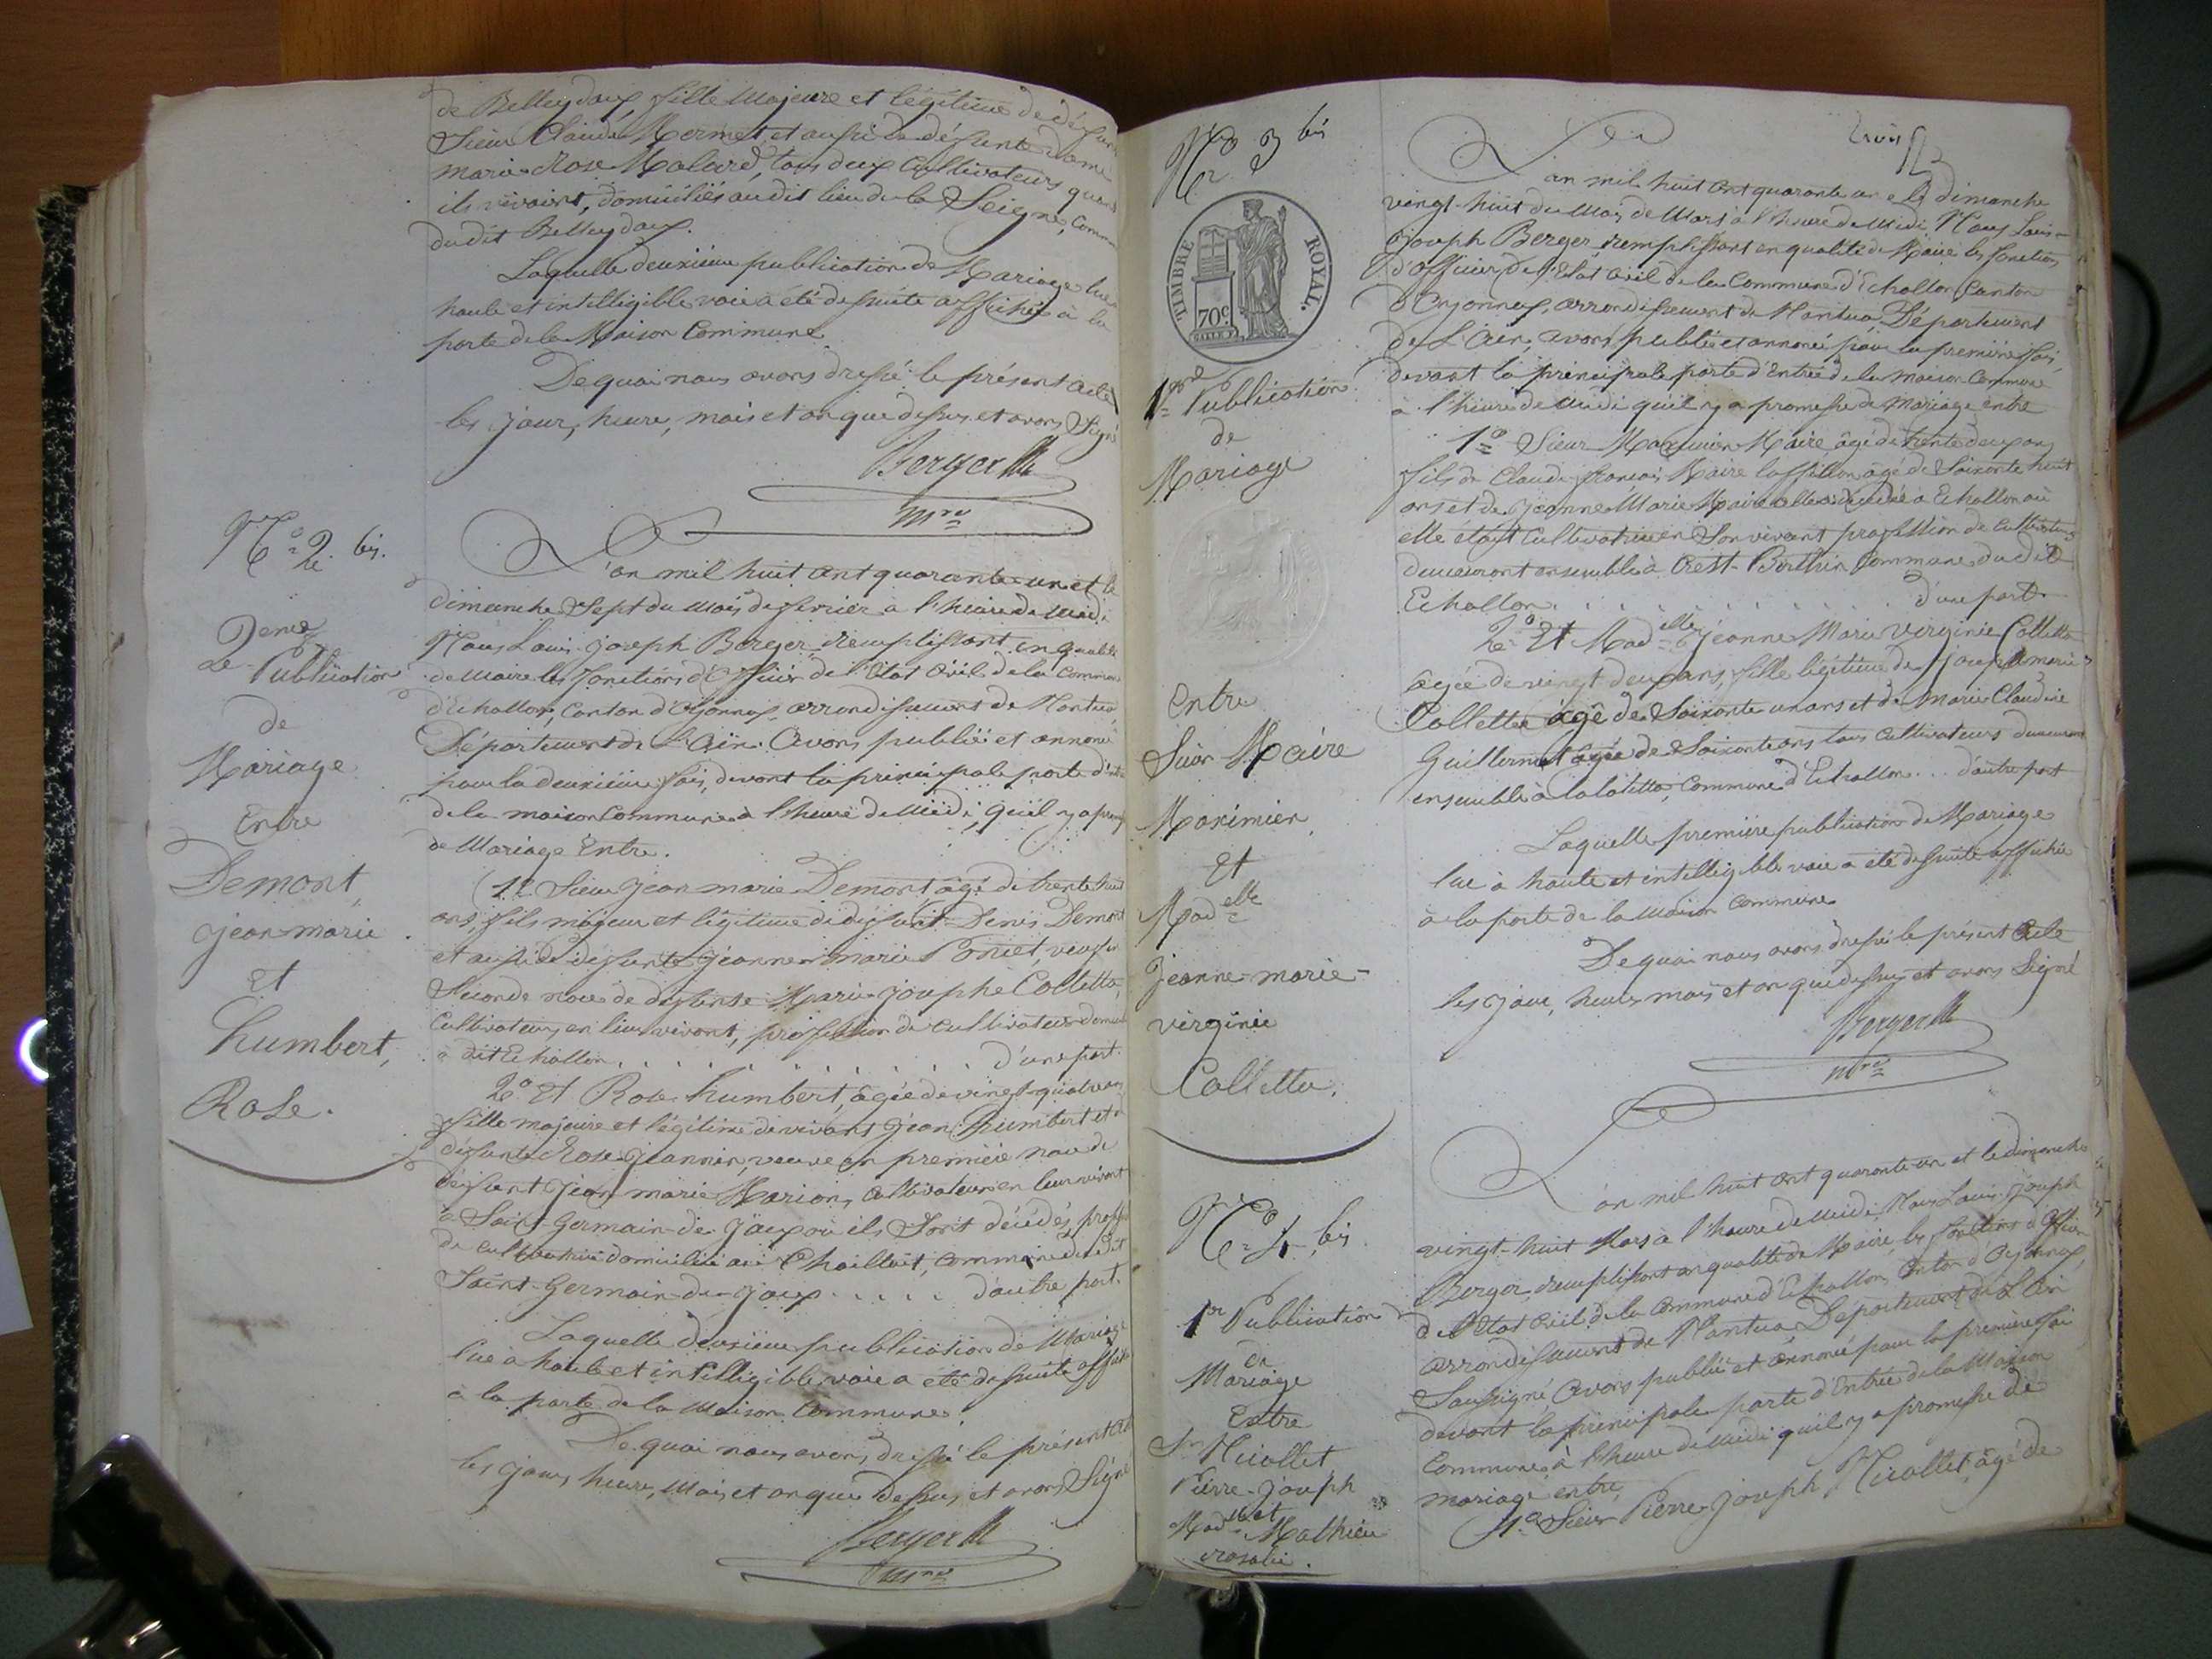 de Belleydoux fille Majeure et légitime de défunt
Sieur Claude Mermet, et aussi de défunte dame
marie Rose Molard, tous deux Cultivateurs quand
ils vivaient, domiciliés au dit lieu de la Seigne, Comm
du dit Belleydoux.
Laquelle deuxième publication de Mariage lue
haute et intelligible voie a été desuite affichée à la
porte de la Maison Commune
De quoi nous avons dressé le présent acte
les jour, heure, mois et an que dessus et avons Signé
Berger
mre
No 2 bis.
2eme
Publication
de
Mariage
Entre
Demont,
jean-marie
et
humbert,
Rose.
L'an mil huit cent quarante-un et le
dimanche Sept du mois de fevrier à l'heure de midi
Nous Louis-joseph Berger, remplissant en qualité
de maire les fonctions d'Officier de l'Etat Civil de la Commune
d'Echallon, Canton d'Oyonnax, arrondissement de Nantua
Département de L'Ain. Avons publié et annoncé
pour la deuxième fois, devant la principale porte d'entrée
de la maison Commune à l'heure de Midi, qu'il y a prom
de Mariage Entre.
1o Sieur Jean marie Demont, âgé de trente huit
ans, fils majeur et légitime de défunt Denis Demont
et aussi de défunte Jeanne marie Poncet, veuf en
Seconde noce de défunte Marie josephe Colletta,
Cultivateurs en leur vivant, profession de cultivateur
à dit Echallon . . . . . . . . d'une part.
2o Et Rose humbert, âgée de vingt-quatre ans
fille majeure et légitime de vivant Jean humbert et de
défunte Rose Jeannin, veuve en première noce de
défunt Jean marie Marion, cultivateurs en leur vivant
à Saint-Germain-de-Joux où ils Sont décédés, profess
de cultivatrice domiciliée au Chaillet, commune dudit
Saint-Germain-de-Joux . . . . . d'autre part.
Laquelle deuxieme publication de Mariage
lue à haute et intelligible voie a été desuite affichée
à la porte de la Maison Commune.
De quoi nous avons dressé le présent acte
les jour, heure, Mois et an que dessus, et avons Signé
Berger
mre
No 3 bis
TIMBRE ROYAL.
70c
1re Publication
de
Mariage
Entre
Sieur Maire
Maximien
Et
Madelle
Jeanne-marie-
virginie
Colletta.
trois
L'an mil huit cent quarante un et le dimanche
vingt-huit du Mois de Mars à l'heure de Midi, Nous Louis-
joseph Berger, remplissant en qualité de Maire les fonctions
d'officier de l'Etat Civil de la Commune d'Echallon Canton
d'Oyonnax, arrondissement de Nantua Département
de L'Ain, avons publié et annoncé pour la première fois
devant la principale porte d'Entrée de la Maison Commune
à l'heure de midi qu'il y a promesse de Mariage entre
1o Sieur Maximien Maire, âgé de trente deux ans
fils de Claude françois Maire âgé de Soixante huit
ans et de Jeanne Marie Maire décédée à Echallon où
elle était Cultivatrice en Son vivant profession de Cultivateurs
demeurant ensemble à Crest-Berthin Commune du dit
Echallon . . . . . . . . d'une part
2o Et Madelle Jeanne Marie Virginie Colletta
âgée de vingt deux ans, fille légitime de Joseph marie
Colletta âgé de Soixante un ans et de Marie Claudine
Guillermet âgée de Soixante ans tous Cultivateurs demeurant
ensemble à , Commune d'Echallon . . . d'autre part
Laquelle première publication de Mariage
lue à haute et intelligible voie a été desuite affichée
à la porte de la Maison Commune
De quoi nous avons dressé le présent Acte
les jour, heure mois et an que dessus et avons Signé
Berger
mre
No 4 bis
1re Publication
de
Mariage
Entre
Sr Nicollet
Pierre-joseph
et
Madelle Mathieu
rosalie.
L'an mil huit cent quarante un et le dimanche
vingt-huit Mars à l'heure de midi, Nous Louis-Joseph
Berger, remplissant en qualité de Maire, les fonctions d'Officier
de l'Etat Civil de la Commune d'Echallon, Canton d'Oyonnax,
arrondissement de Nantua Département de L'Ain
Soussigné, Avons publié et annoncé pour la première fois
devant la principale porte d'Entrée de la Maison
Commune à l'heure de Midi qu'il y a promesse de
mariage entre,
1o Sieur Pierre-Joseph Nicollet, âgé de